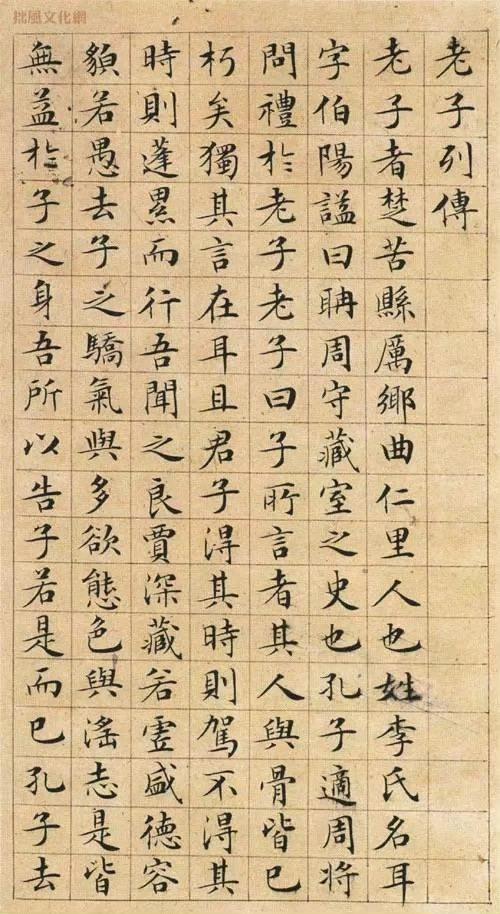 拙風文化網
老子列傳
老子者楚苦縣厲鄉曲仁里人也姓李氏名耳
字伯陽謚曰聃周守藏室之史也孔子適周將
問禮於老子老子曰子所言者其人與骨皆已
朽矣獨其言在耳且君子得其時則駕不得其
時則蓬累而行吾聞之良賈深藏若虛盛德容
貌若愚去子之驕氣與多欲態色與滛志是皆
無益於子之身吾所以告子若是而已孔子去